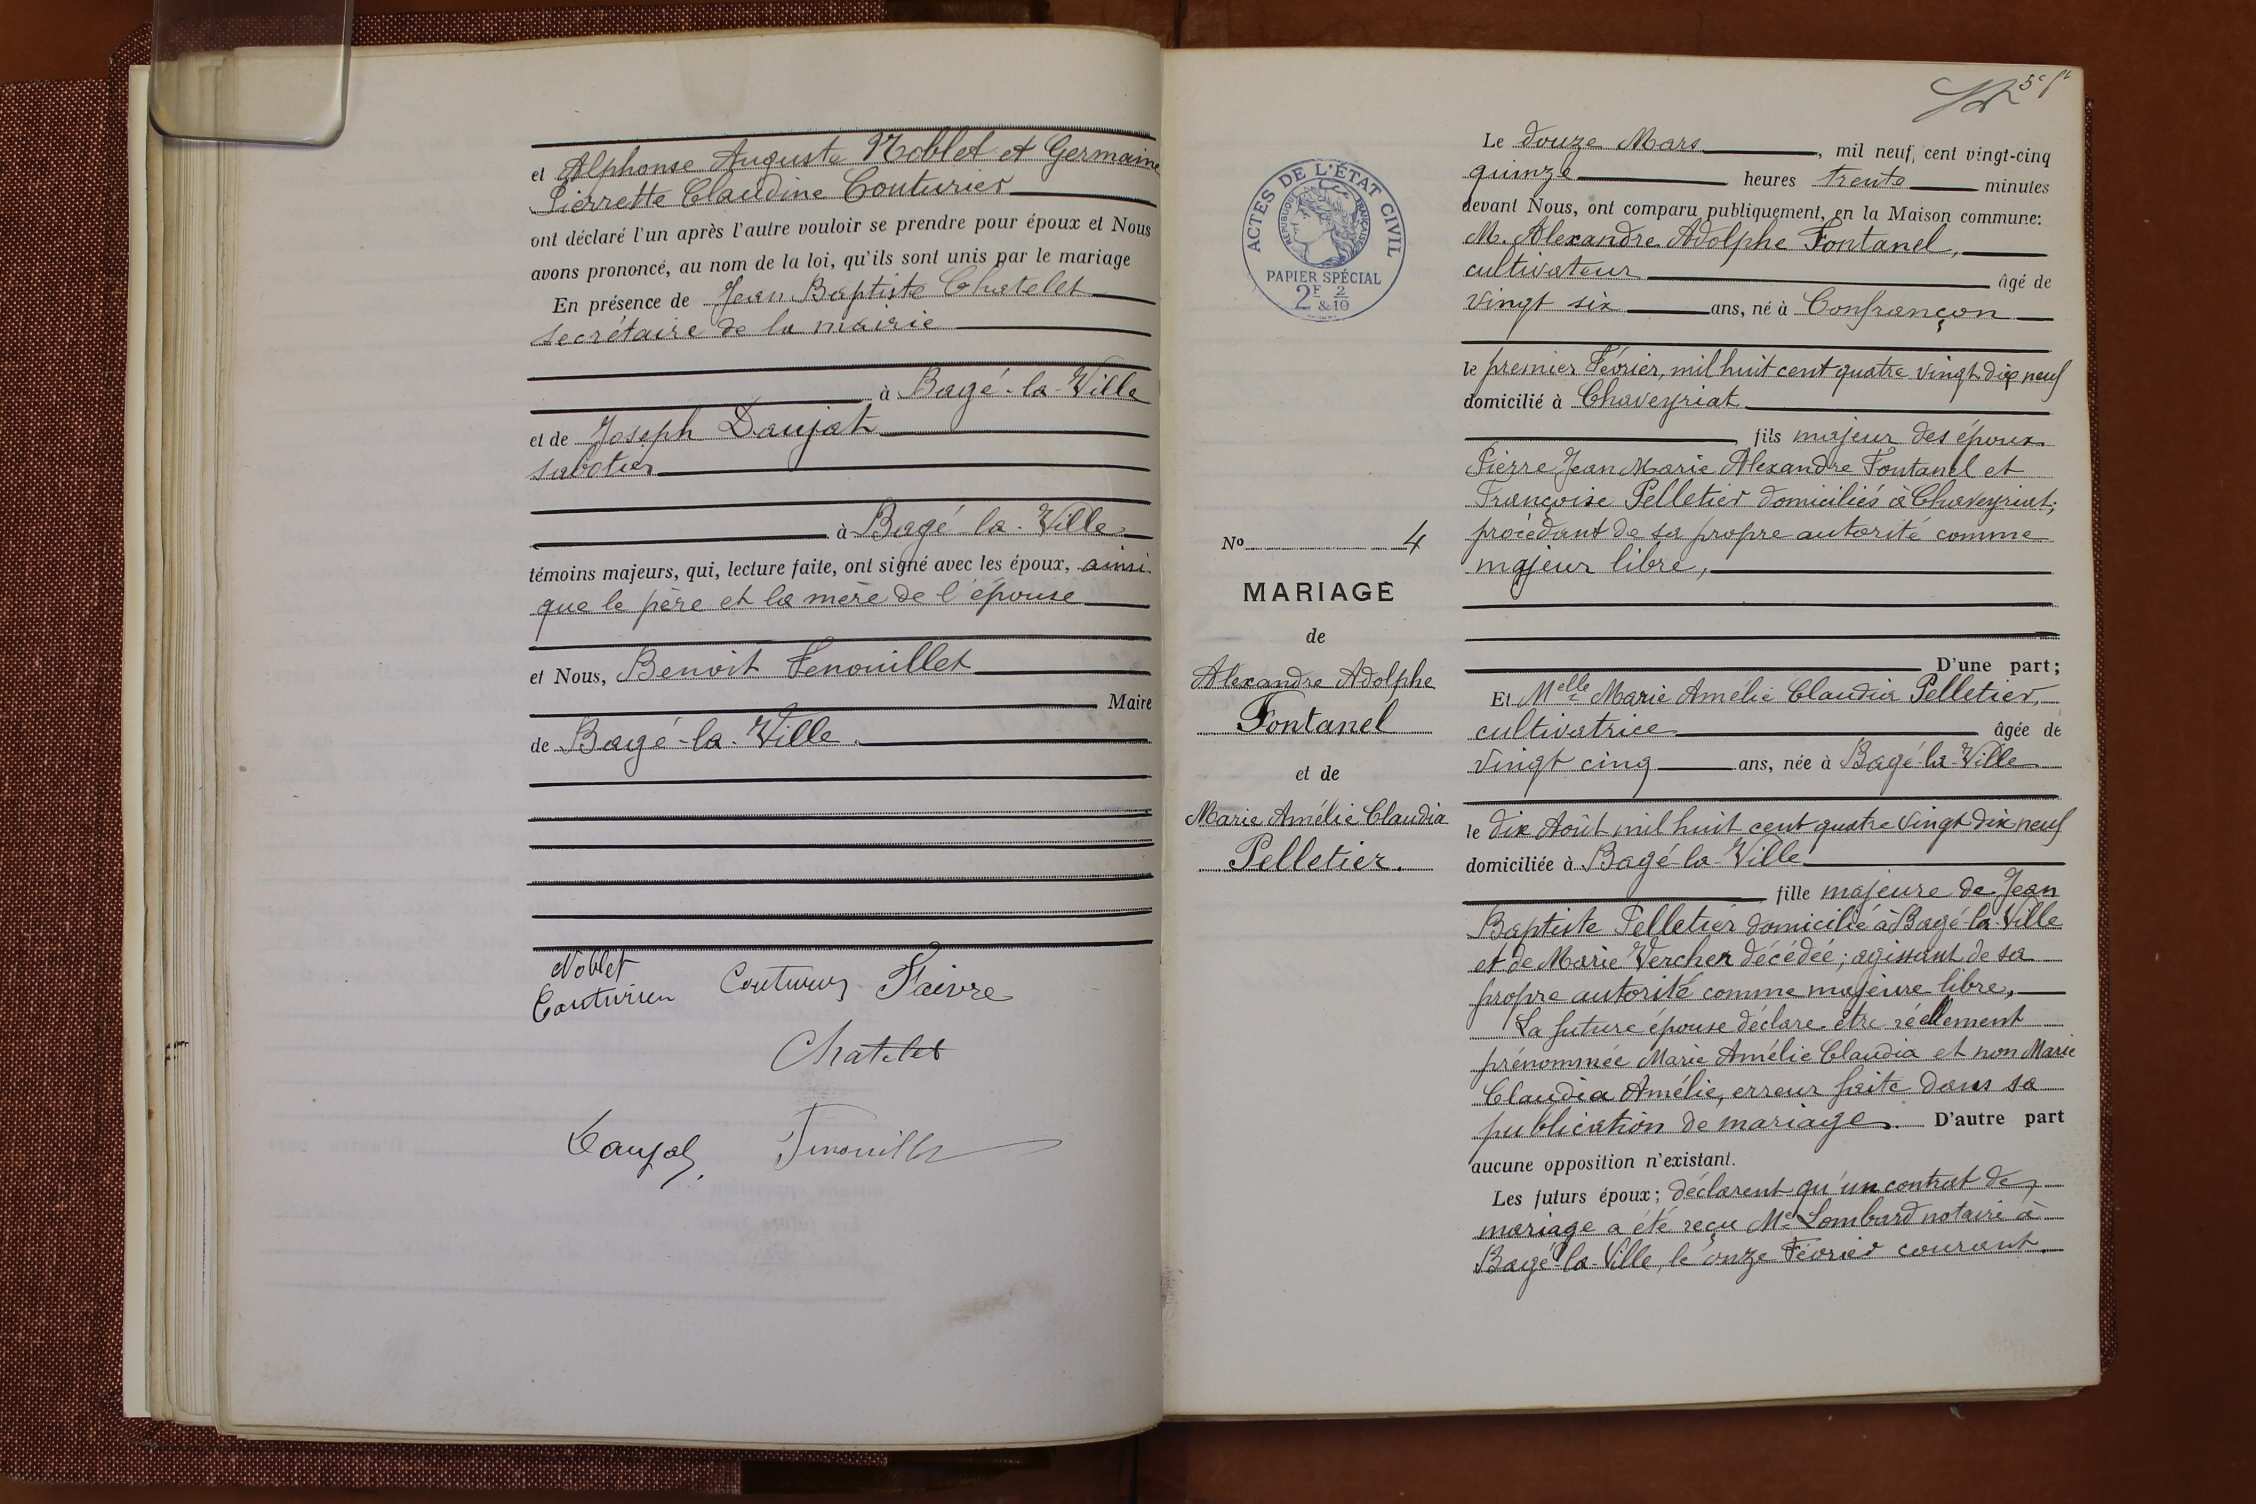 et Alphonse Auguste Noblet et Germaine
Pierrette Claudine Couturier
ont déclaré l'un après l'autre vouloir se prendre pour époux et Nous
avons prononcé, au nom de la loi, qu'ils sont unis par le mariage
En présence de Jean Baptiste Chatelet
secrétaire de la mairie
à Bagé-la-Ville
et de Joseph Daujat
sabotier
à Bagé-la-Ville
témoins majeurs, qui, lecture faite, ont signé avec les époux, ainsi
que le père et la mère de l'épouse
et Nous, Benoit Fenouillet
Maire
de Bagé-la-Ville.
Noblet
Couturier Couturier Faivre
Chatelet
Daujat Fenouillet
5e
ACTES DE L'ÉTAT CIVIL
RÉPUBLIQUE FRANÇAISE
PAPIER SPÉCIAL
2F & 2/10
No 4
MARIAGE
de
Alexandre Adolphe
Fontanel
et de
Marie Amélie Claudia
Pelletier.
Le douze Mars, mil neuf cent vingt-cinq
quinze heures trente minutes
devant Nous, ont comparu publiquement, en la Maison commune:
M. Alexandre Adolphe Fontanel,
cultivateur âgé de
vingt six ans, né à Confrançon
le premier Février, mil huit cent quatre vingt dix neuf
domicilié à Chaveyriat
, fils majeur des époux
Pierre Jean Marie Alexandre Fontanel et
Françoise Pelletier domiciliés à Chaveyriat;
procédant de sa propre autorité comme
majeur libre,
D'une part;
Et Melle Marie Amélie Claudia Pelletier,
cultivatrice âgée de
vingt cinq ans, née à Bagé-la-Ville
le dix Août mil huit cent quatre vingt dix neuf
domiciliée à Bagé-la-Ville
, fille majeure de Jean
Baptiste Pelletier domicilié à Bagé-la-Ville
et de Marie Vercher décédée; agissant de sa
propre autorité comme majeure libre,
La future épouse déclare être réellement
prénommée Marie Amélie Claudia et non Marie
Claudia Amélie, erreur faite dans sa
publication de mariage. D'autre part
aucune opposition n'existant.
Les futurs époux; déclarent qu'un contrat de
mariage a été reçu Me Lombard notaire à
Bagé-la-Ville, le onze Février courant.